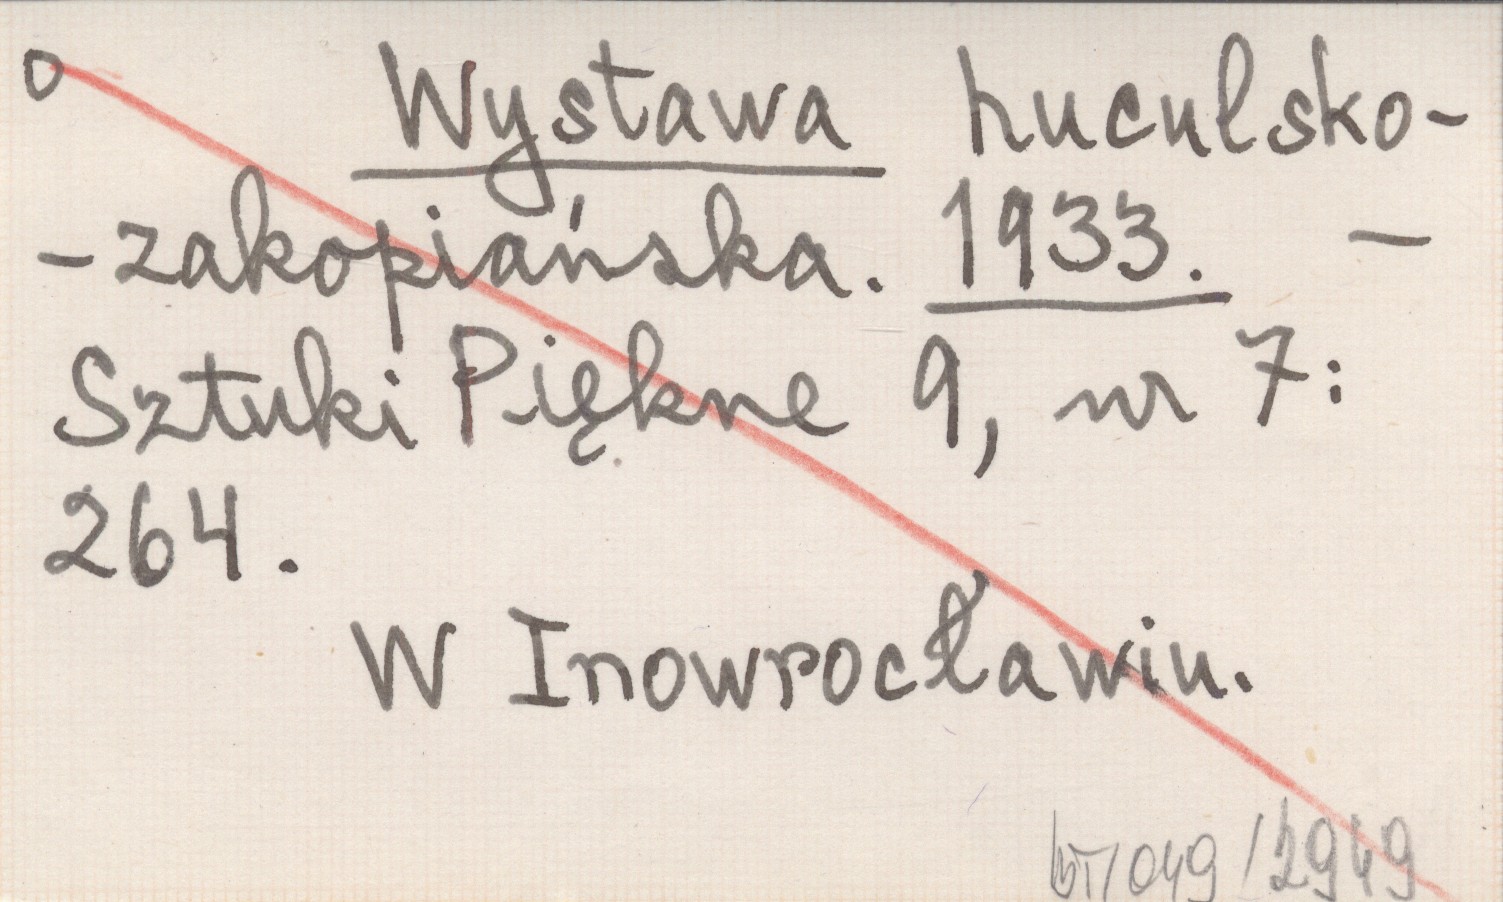 o Wystawa huculsko-
-zakopiańska. 1933. –
Sztuki Piękne 9, nr 7:
264.
W Inowrocławiu.